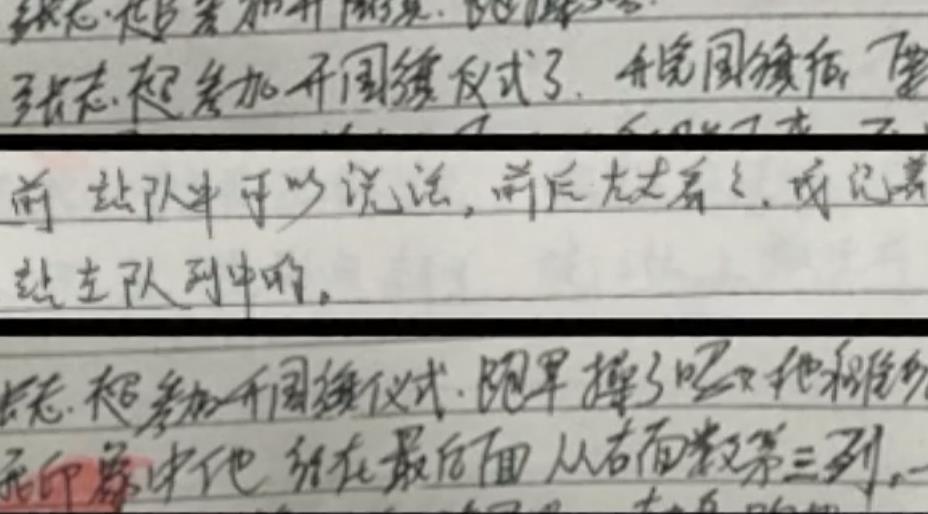 张志超参加升国旗仪式了。升完国旗后，
前 站队中可以说话，前后左右看看，我记着
站在队列中的。
张志超参加升国旗仪式。跑早操了吧？他
印象中他 站在最后面 从右面数第三列。